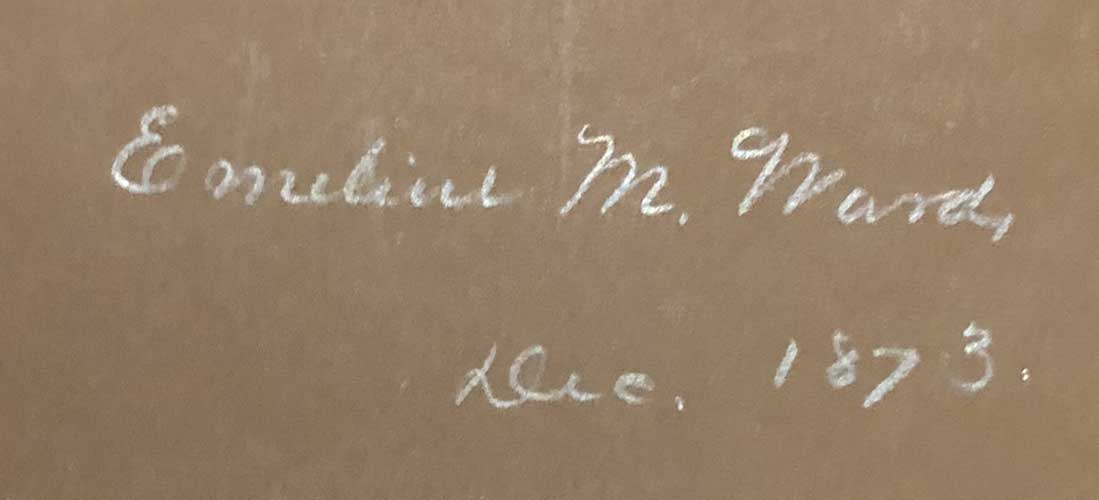 Emeline M. Ward,
Dec. 1873.